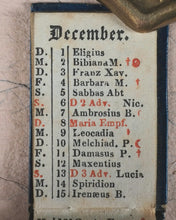 December.
D. 1 Eligius
M. 2 Bibiana M.
D. 3 Franz Xav.
F. 4 Barbara M.
S. 5 Sabbas Abt
S. 6 D 2 Adv. Nic.
M. 7 Ambrosius B.
D. 8 Maria Empf.
M. 9 Leocadia
D. 10 Melchiad. P.
F. 11 Damasus P.
S. 12 Maxentius
S. 13 D 3 Adv. Lucia
M. 14 Spiridion
D. 15 Irenæus B.